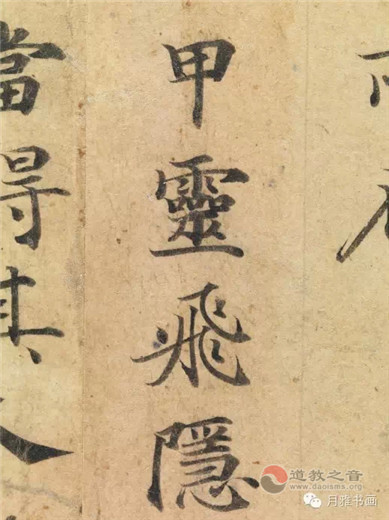 甲靈飛隱
當得其人
道教之音
www.daoisms.org
月雅书画